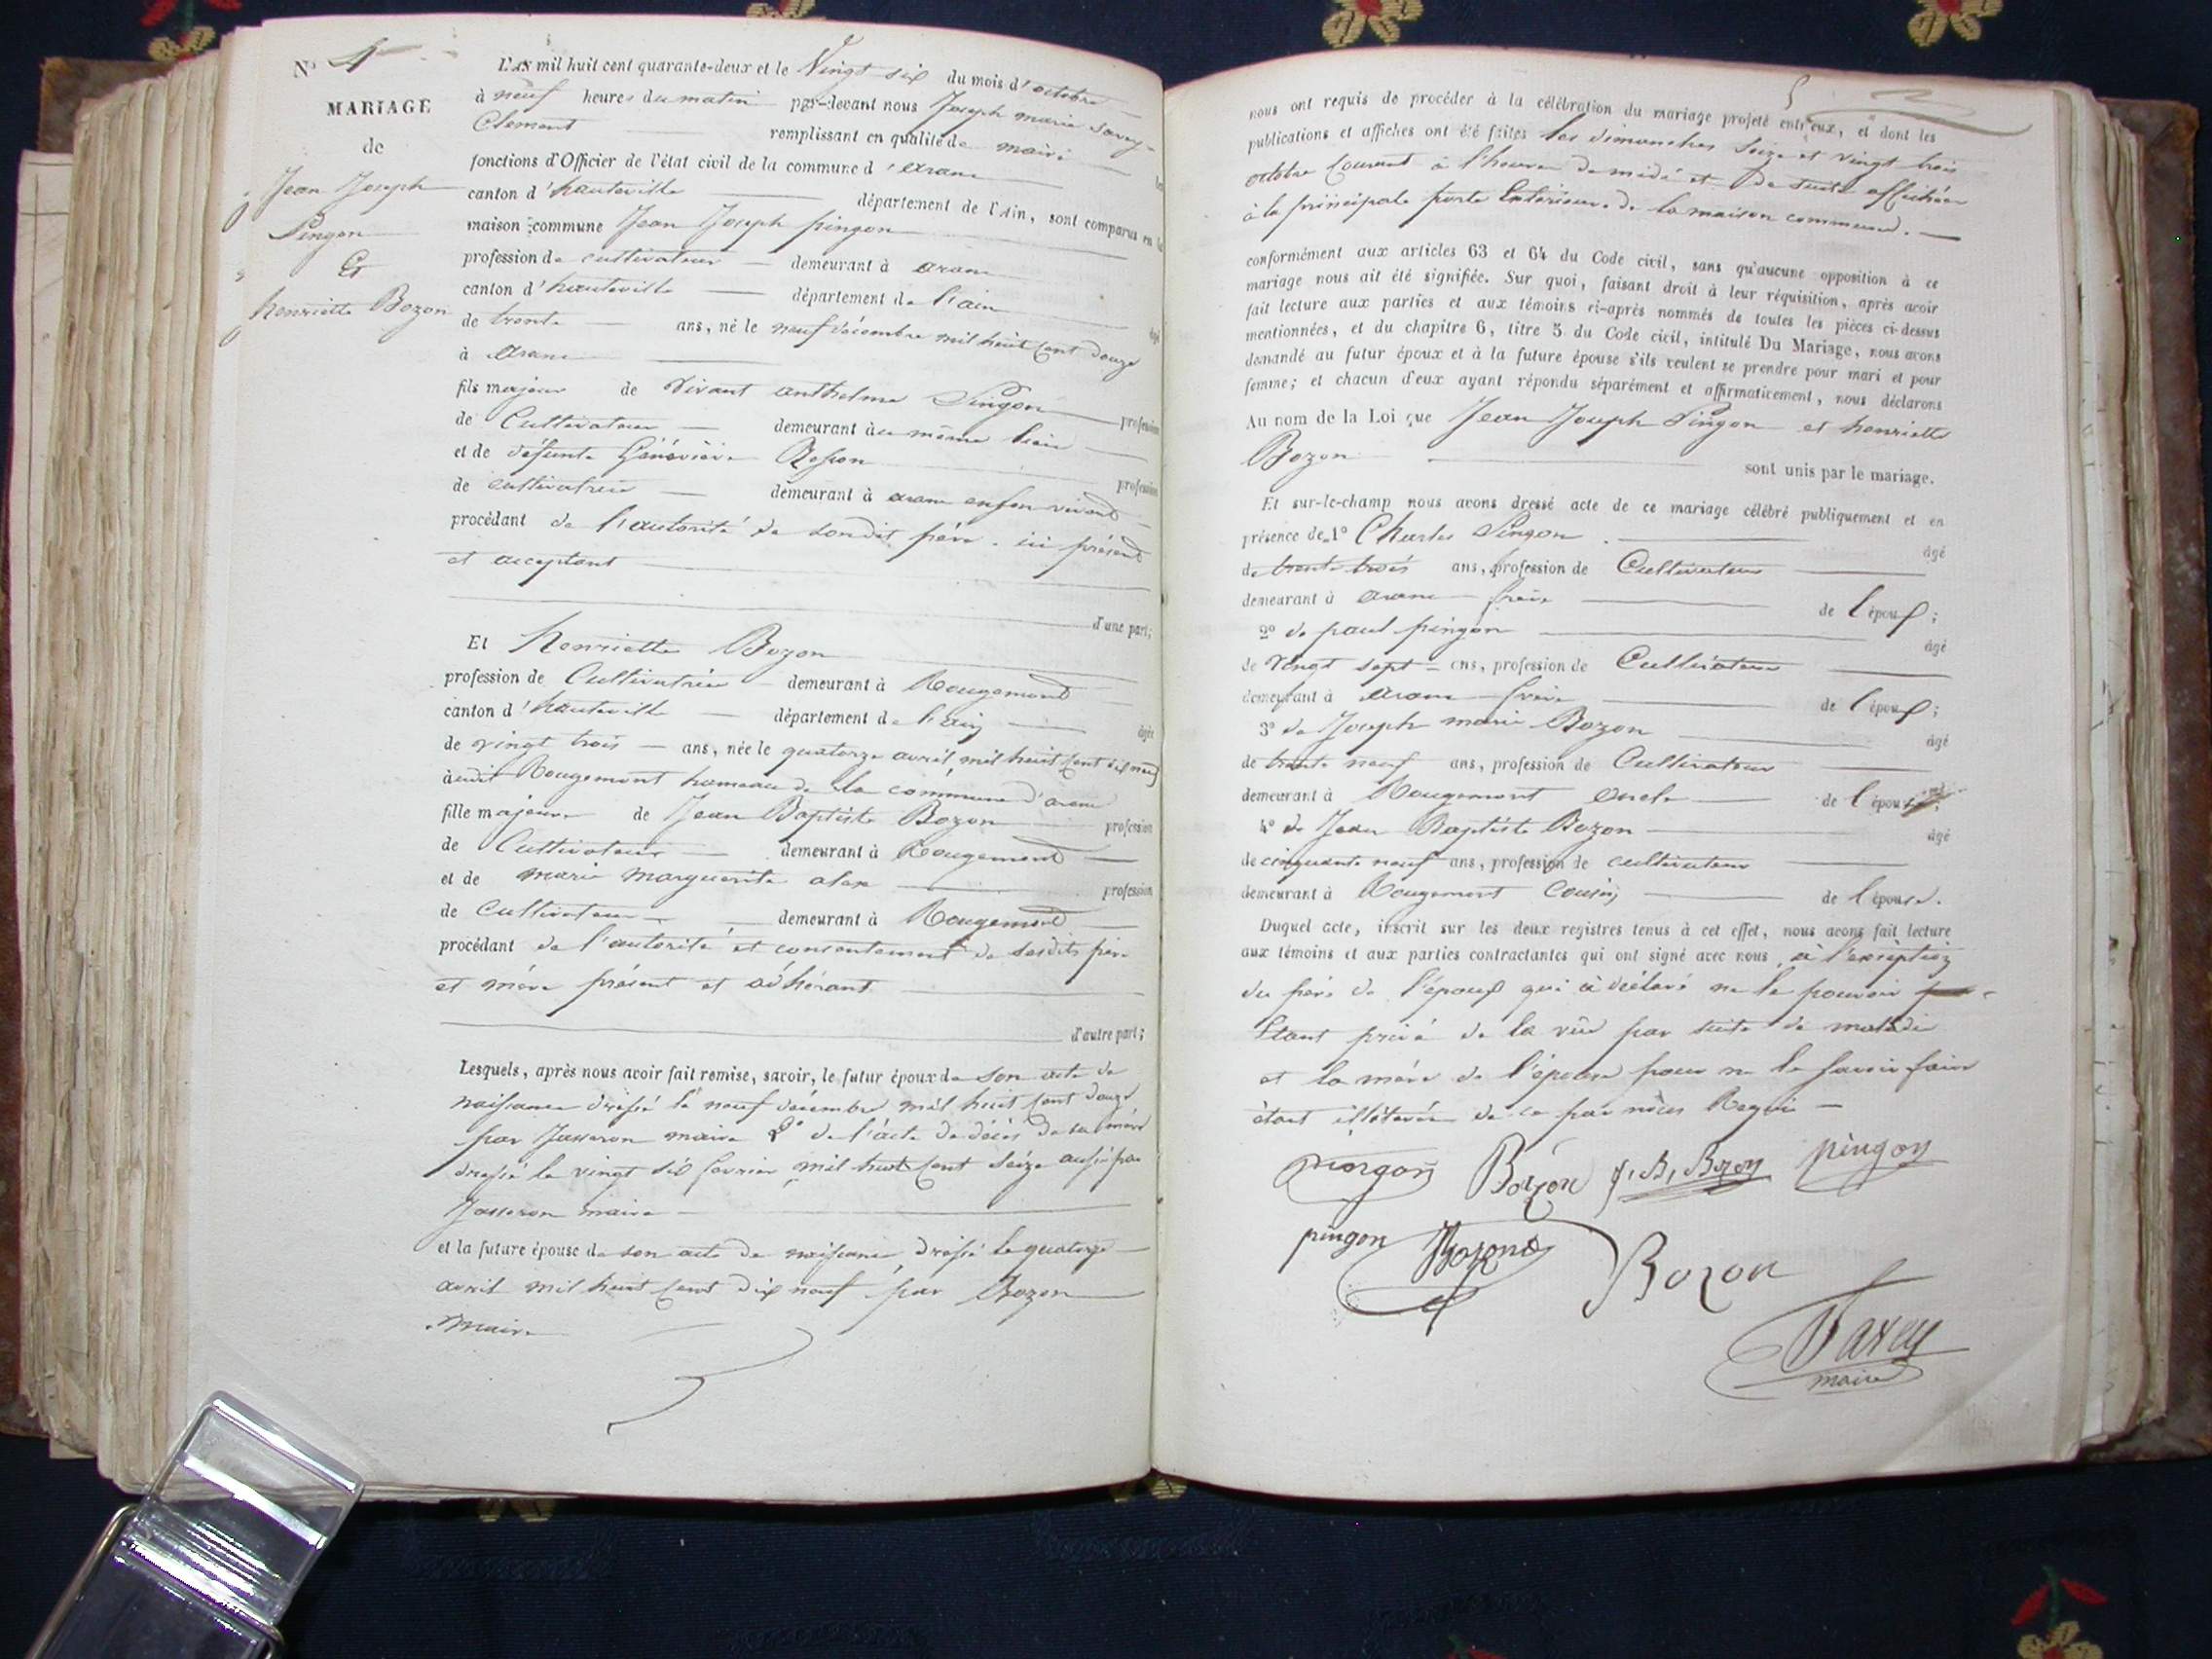 N° 4
MARIAGE
de
Jean Joseph
Pingon
Et
henriette Bozon
L'an mil huit cent quarante-deux et le Vingt six du mois d'octobre
à neuf heures du matin par-devant nous Joseph marie Savey
Clement remplissant en qualité de maire les
fonctions d'Officier de l'état civil de la commune d'aranc
canton d'hauteville département de l'Ain, sont comparus en la
maison commune Jean Joseph pingon
profession de cultivateur demeurant à aranc
canton d'hauteville département de l'ain
âgé
de trente ans, né le neuf décembre mil huit cent douze
à Aranc
fils majeur de Vivant anthelme Pingon profession
de Cultivateur demeurant au même lieu
et de défunte Généviève profession
de cultivatrice demeurant à aranc en son vivant
procédant de l'autorité de sondit père ici présent
et acceptant
d'une part;
Et henriette Bozon
profession de Cultivatrice demeurant à Rougemont
canton d'hauteville département de l'ain
âgée
de vingt trois ans, née le quatorze avril mil huit cent dix neuf
audit Rougemont hameau de la commune d'aranc
fille majeure de Jean Baptiste Bozon profession
de Cultivateur demeurant à Rougemont
et de marie marguerite profession
de Cultivateur demeurant à Rougemont
procédant de l'autorité et consentement de sesdits père
et mère présent et adhérant
d'autre part;
Lesquels, après nous avoir fait remise, savoir, le futur époux de son acte de
naissance dressé le neuf décembre mil huit cent douze
par Jasseron maire 2° de l'acte de décès de sa mère
dressé le vingt six fevrier mil huit cent seize aussi par
Jasseron maire
et la future épouse de son acte de naissance dressé le quatorze
avril mil huit cent dix neuf par Bozon
Maire
nous ont requis de procéder à la célébration du mariage projeté entr'eux, et dont les
publications et affiches ont été faites les dimanches Seize et vingt trois
octobre Courant à l'heure de midi et de suite affichées
à la principale porte Extérieure de la maison commune.
conformément aux articles 63 et 64 du Code civil, sans qu'aucune opposition à ce
mariage nous ait été signifiée. Sur quoi, faisant droit à leur réquisition, après avoir
fait lecture aux parties et aux témoins ci-après nommés de toutes les pièces ci-dessus
mentionnées, et du chapitre 6, titre 5 du Code civil, intitulé Du Mariage, nous avons
demandé au futur époux et à la future épouse s'ils veulent se prendre pour mari et pour
femme; et chacun d'eux ayant répondu séparément et affirmativement, nous déclarons
Au nom de la Loi que Jean Joseph Pingon et henriette
Bozon sont unis par le mariage.
Et sur-le-champ nous avons dressé acte de ce mariage célébré publiquement et en
présence de 1° Charles Pingon âgé
de trente trois ans, profession de Cultivateur
demeurant à aranc frère de l'époux;
2° de paul pingon âgé
de Vingt sept ans, profession de Cultivateur
demeurant à Aranc frère de l'époux;
3° de Joseph marie Bozon âgé
de trente neuf ans, profession de Cultivateur
demeurant à Rougemont oncle de l'épouse;
4° de Jean Baptiste Bozon âgé
de cinquante neuf ans, profession de cultivateur
demeurant à Rougemont Cousin de l'épouse.
Duquel acte, inscrit sur les deux registres tenus à cet effet, nous avons fait lecture
aux témoins et aux parties contractantes qui ont signé avec nous, à l'exception
du père de l'époux qui a déclaré ne le pouvoir
Etant privé de la vüe par suite de maladie
et la mère de l'épouse pour ne le savoir faire
étant illétérée de ce par nous Requis
pingon Bozon J, B, Bozon pingon
pingon Bozon Bozon
Savey
maire